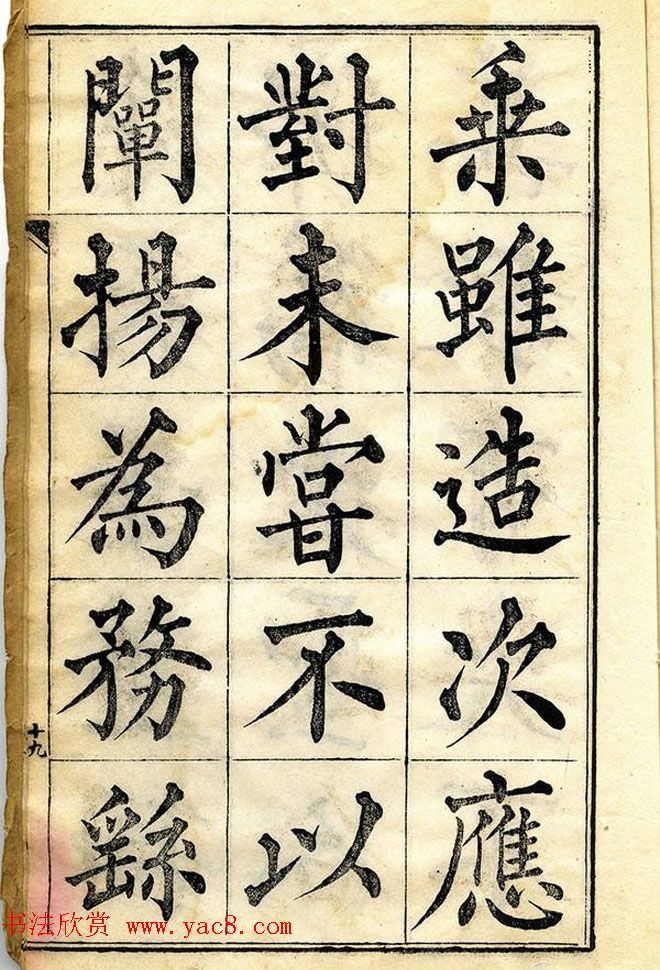 乗雖造次應
對未嘗不以
闡揚為務繇
十九
书法欣赏 www.yac8.com